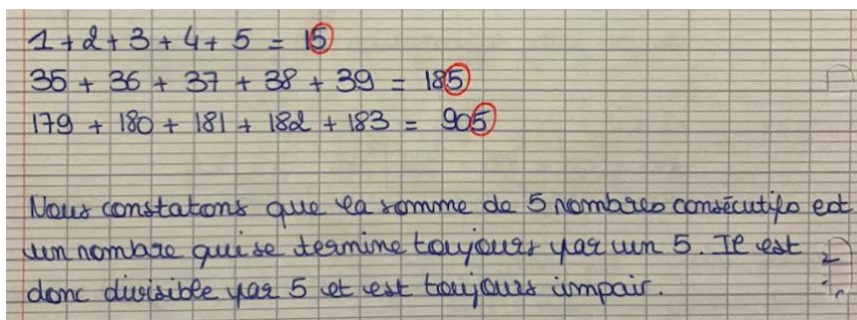 1 + 2 + 3 + 4 + 5 = 15
35 + 36 + 37 + 38 + 39 = 185
179 + 180 + 181 + 182 + 183 = 905
Nous constatons que la somme de 5 nombres consécutifs est
un nombre qui se termine toujours par un 5. Il est
donc divisible par 5 et est toujours impair.